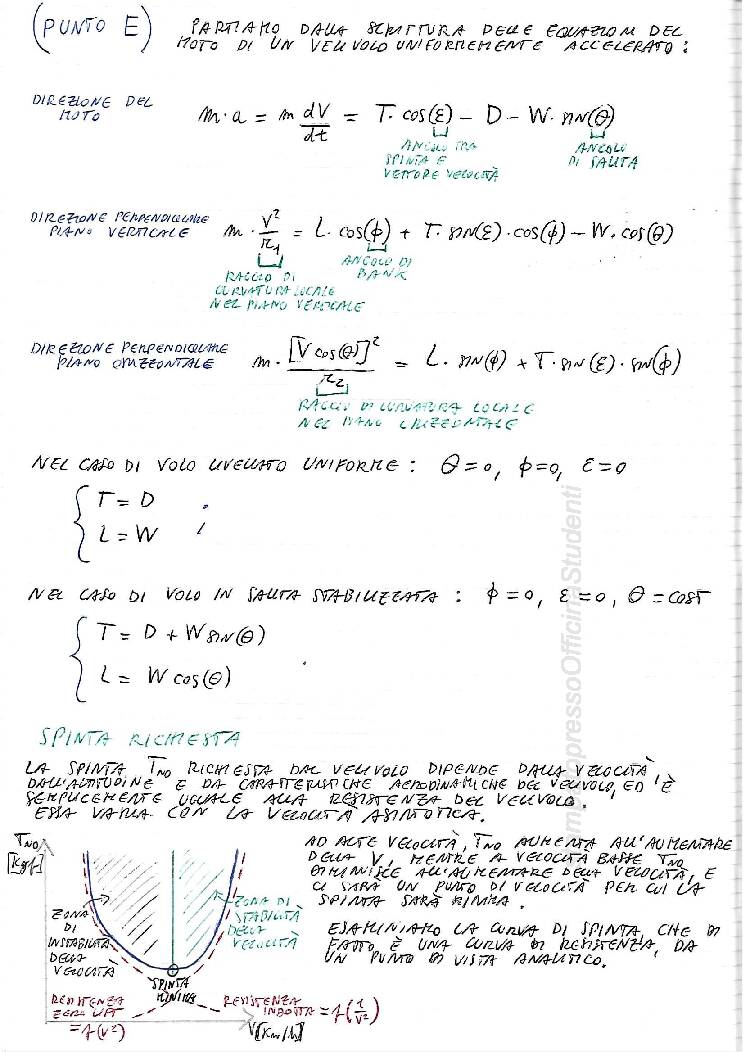 (PUNTO E) PARTIAMO DALLA SCRITTURA DELLE EQUAZIONI DEL
MOTO DI UN VELIVOLO UNIFORMEMENTE ACCELERATO:
DIREZIONE DEL
MOTO
m·a = m dV/dt = T·cos(ε) − D − W·sin(θ)
ANGOLO TRA
SPINTA E
VETTORE VELOCITÀ
ANGOLO
DI SALITA
DIREZIONE PERPENDICOLARE
PIANO VERTICALE
m · V²/r₁ = L·cos(ϕ) + T·sin(ε)·cos(ϕ) − W·cos(θ)
RAGGIO DI
CURVATURA LOCALE
NEL PIANO VERTICALE
ANGOLO DI
BANK
DIREZIONE PERPENDICOLARE
PIANO ORIZZONTALE
m · [V cos(θ)]²/r₂ = L·sin(ϕ) + T·sin(ε)·sin(ϕ)
RAGGIO DI CURVATURA LOCALE
NEL PIANO ORIZZONTALE
NEL CASO DI VOLO LIVELLATO UNIFORME: θ=0, ϕ=0, ε=0
T = D ;
L = W
NEL CASO DI VOLO IN SALITA STABILIZZATA: ϕ=0, ε=0, θ=COST
T = D + W sin(θ)
L = W cos(θ)
SPINTA RICHIESTA
LA SPINTA T_NO RICHIESTA DAL VELIVOLO DIPENDE DALLA VELOCITÀ,
DALL'ALTITUDINE E DA CARATTERISTICHE AERODINAMICHE DEL VELIVOLO, ED È
SEMPLICEMENTE UGUALE ALLA RESISTENZA DEL VELIVOLO.
ESSA VARIA CON LA VELOCITÀ ASINTOTICA.
T_NO
[Kgf]
ZONA
DI
INSTABILITÀ
DELLA
VELOCITÀ
ZONA DI
STABILITÀ
DELLA
VELOCITÀ
SPINTA
MINIMA
RESISTENZA
ZERO LIFT
= f(V²)
RESISTENZA
INDOTTA = f(1/V²)
V[Km/h]
AD ALTE VELOCITÀ, T_NO AUMENTA ALL'AUMENTARE
DELLA V, MENTRE A VELOCITÀ BASSE T_NO
DIMINUISCE ALL'AUMENTARE DELLA VELOCITÀ, E
CI SARÀ UN PUNTO DI VELOCITÀ PER CUI LA
SPINTA SARÀ MINIMA.
ESAMINIAMO LA CURVA DI SPINTA, CHE DI
FATTO È UNA CURVA DI RESISTENZA, DA
UN PUNTO DI VISTA ANALITICO.
pressoOfficinaStudenti